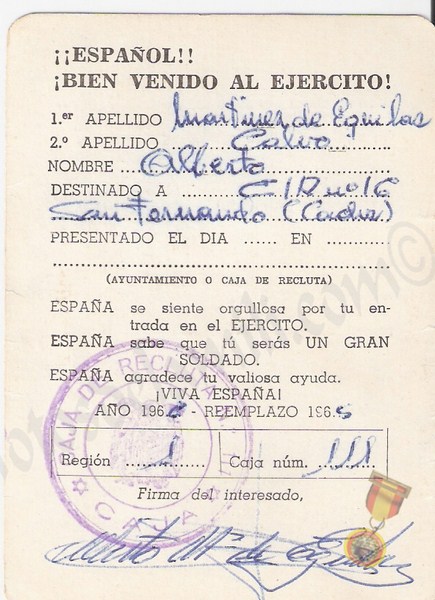 ¡¡ESPAÑOL!!
¡BIEN VENIDO AL EJERCITO!
1.er APELLIDO Martinez de Eguilas
2.º APELLIDO Calvo
NOMBRE Alberto
DESTINADO A C I R nº 16
San Fernando (Cadiz)
PRESENTADO EL DIA ...... EN ............
(AYUNTAMIENTO O CAJA DE RECLUTA)
ESPAÑA se siente orgullosa por tu en-
trada en el EJERCITO.
ESPAÑA sabe que tú serás UN GRAN
SOLDADO.
ESPAÑA agradece tu valiosa ayuda.
¡VIVA ESPAÑA!
AÑO 196 - REEMPLAZO 196
Región 1 Caja núm. 111
Firma del interesado,
CAJA DE RECLUTA
CAJA